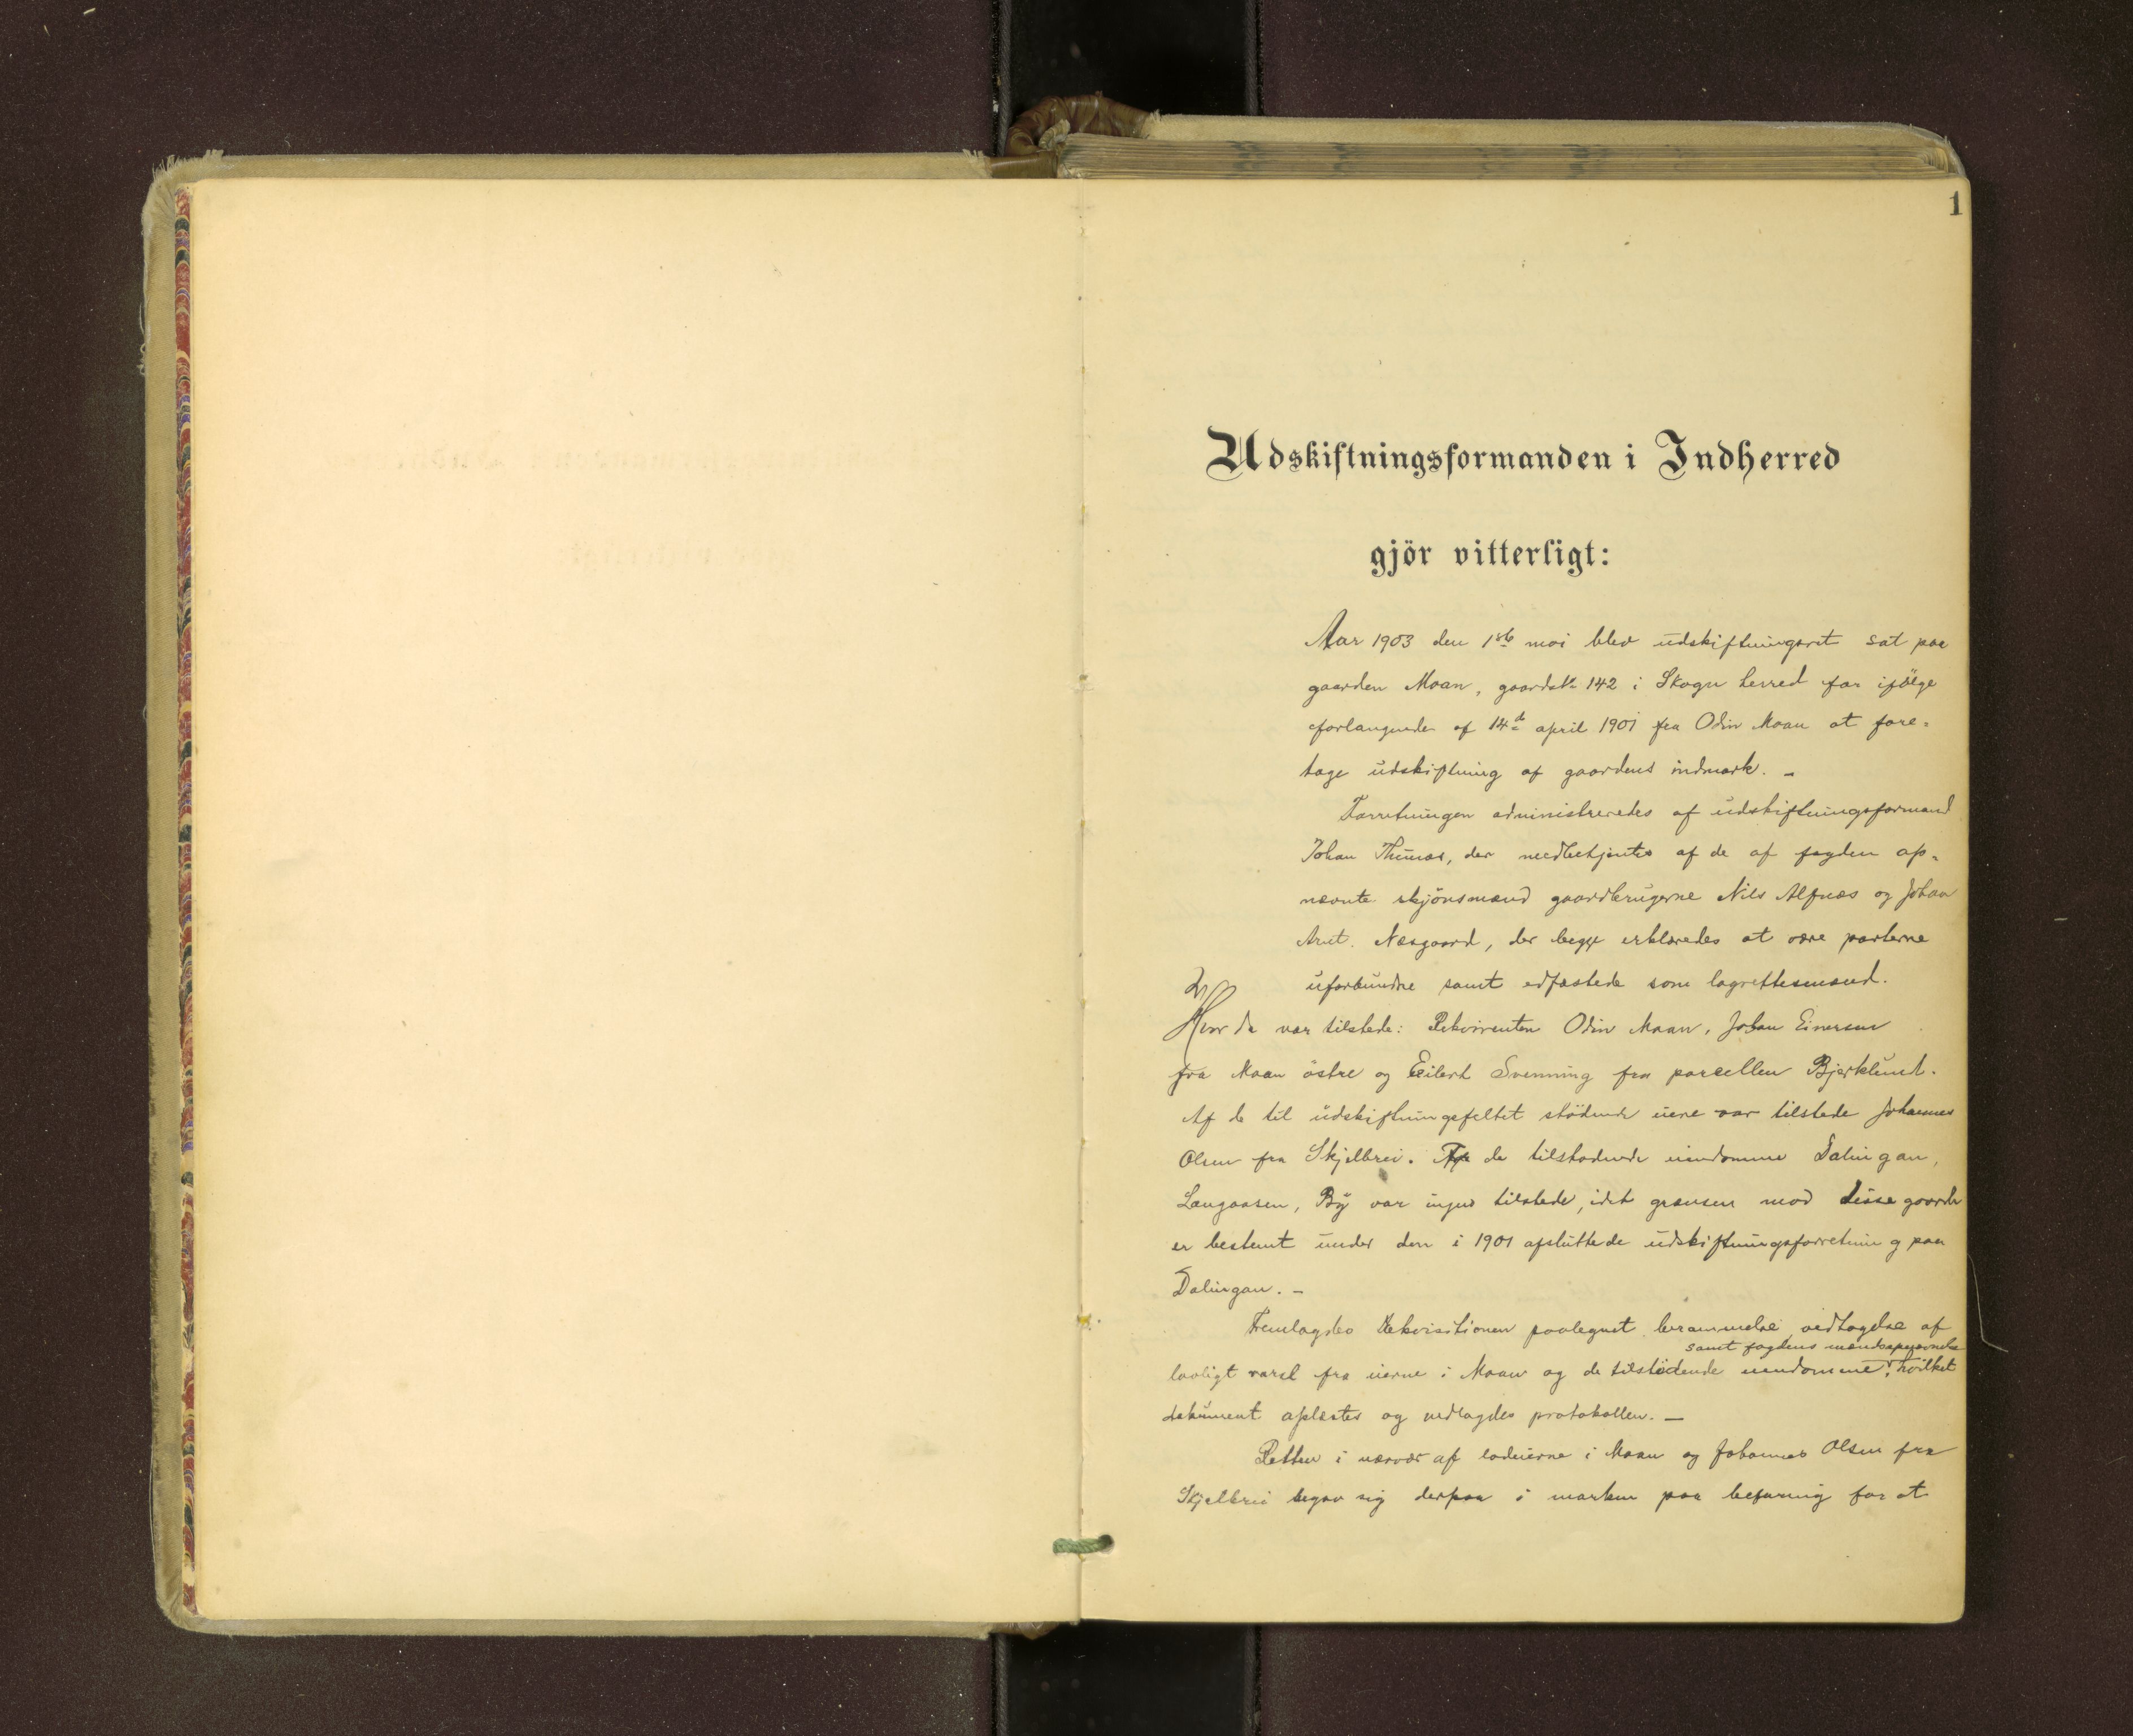 1
Udskiftningsformanden i Indherred
gjör vitterligt:
Aar 1903 den 1ste mai blev udskiftningsret sat paa
gaarden Moan, gaardsk. 142 i Skogn herred for ifölge
forlangende af 14de april 1901 fra Odin Moan at fore-
tage udskiftning af gaardens indmark. -
Forretningen administreredes af udskiftningsformand
Johan Thinas, der medbetjentes af de af fogden op-
nævnte skjönsmænd gaardbrugerne Nils Alfnes og Johan
Arnt. Næsgaard, der begge erklæredes at være parterne
uforbundne samt edfæstede som lagrettesmænd.
Hvor da var tilstede: Rekvirenten Odin Moan, Johan Einersen
fra Moan östre og Eilert Svenning fra parcellen Bjerklund.
Af de til udskiftningsfeltet stödende eiere var tilstede Johannes
Olsen fra Skjelbrei. Fra de tilstödende eiendomme Dalingan,
Langaasen, By var ingen tilstede, idet grænsen mod disse gaarde
er bestemt under den i 1901 afsluttede udskiftningsforretning paa
Dalingan. -
Fremlagdes Rekvisitionen paategnet berammelse vedtagelse af
samt fogdens mændsopnævnelse
lovligt varsel fra eierne i Moan og de tilstödende eiendomme, hvilket
dokument oplæstes og vedlagdes protokollen. -
Retten i nærvær af lodeierne i Moan og Johannes Olsen fra
Skjelbrei begav sig derpaa i marken paa befaring for at